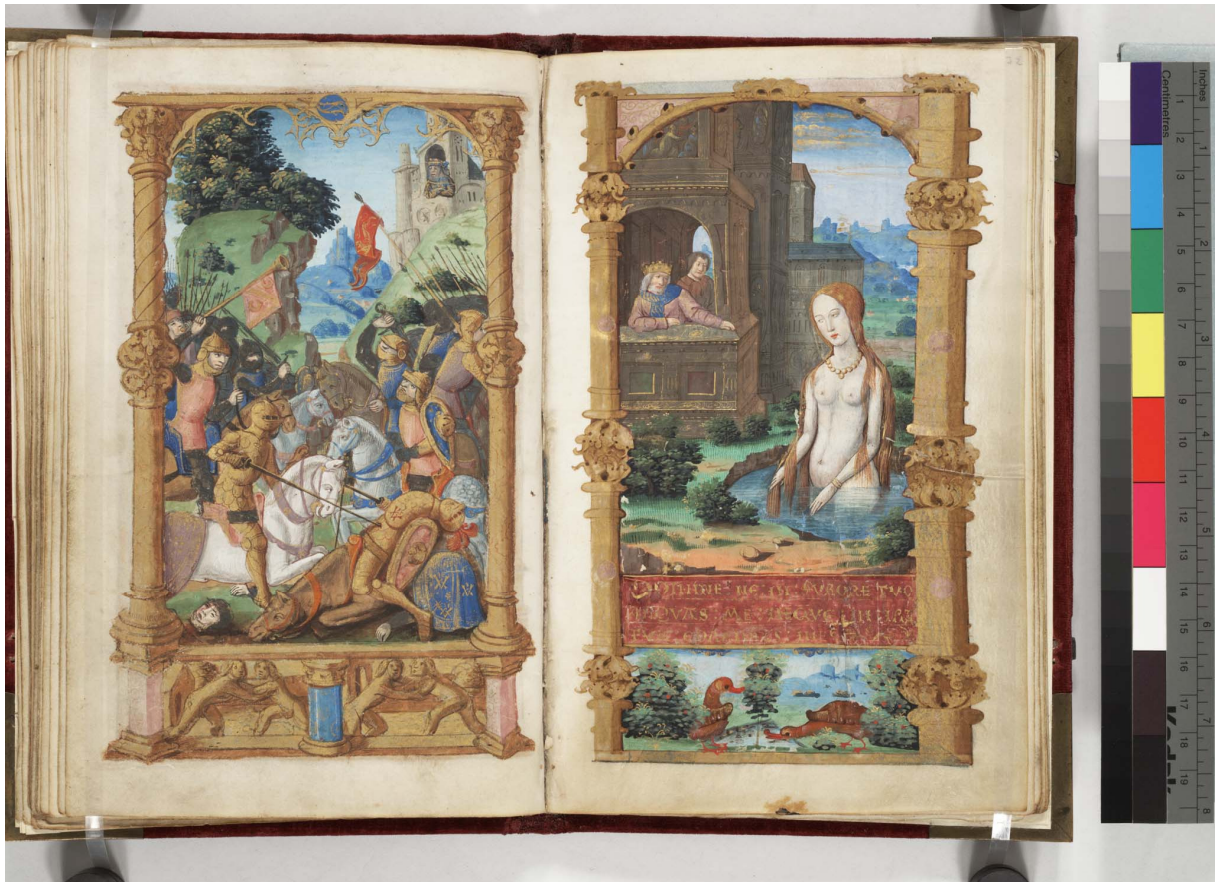 DOMINE NE IN FVRORE TVO
ARGVAS ME NEQVE IN IRA
Inches
1 2 3 4 5 6 7 8
Centimetres
1 2 3 4 5 6 7 8 9 10 11 12 13 14 15 16 17 18 19
Kodak